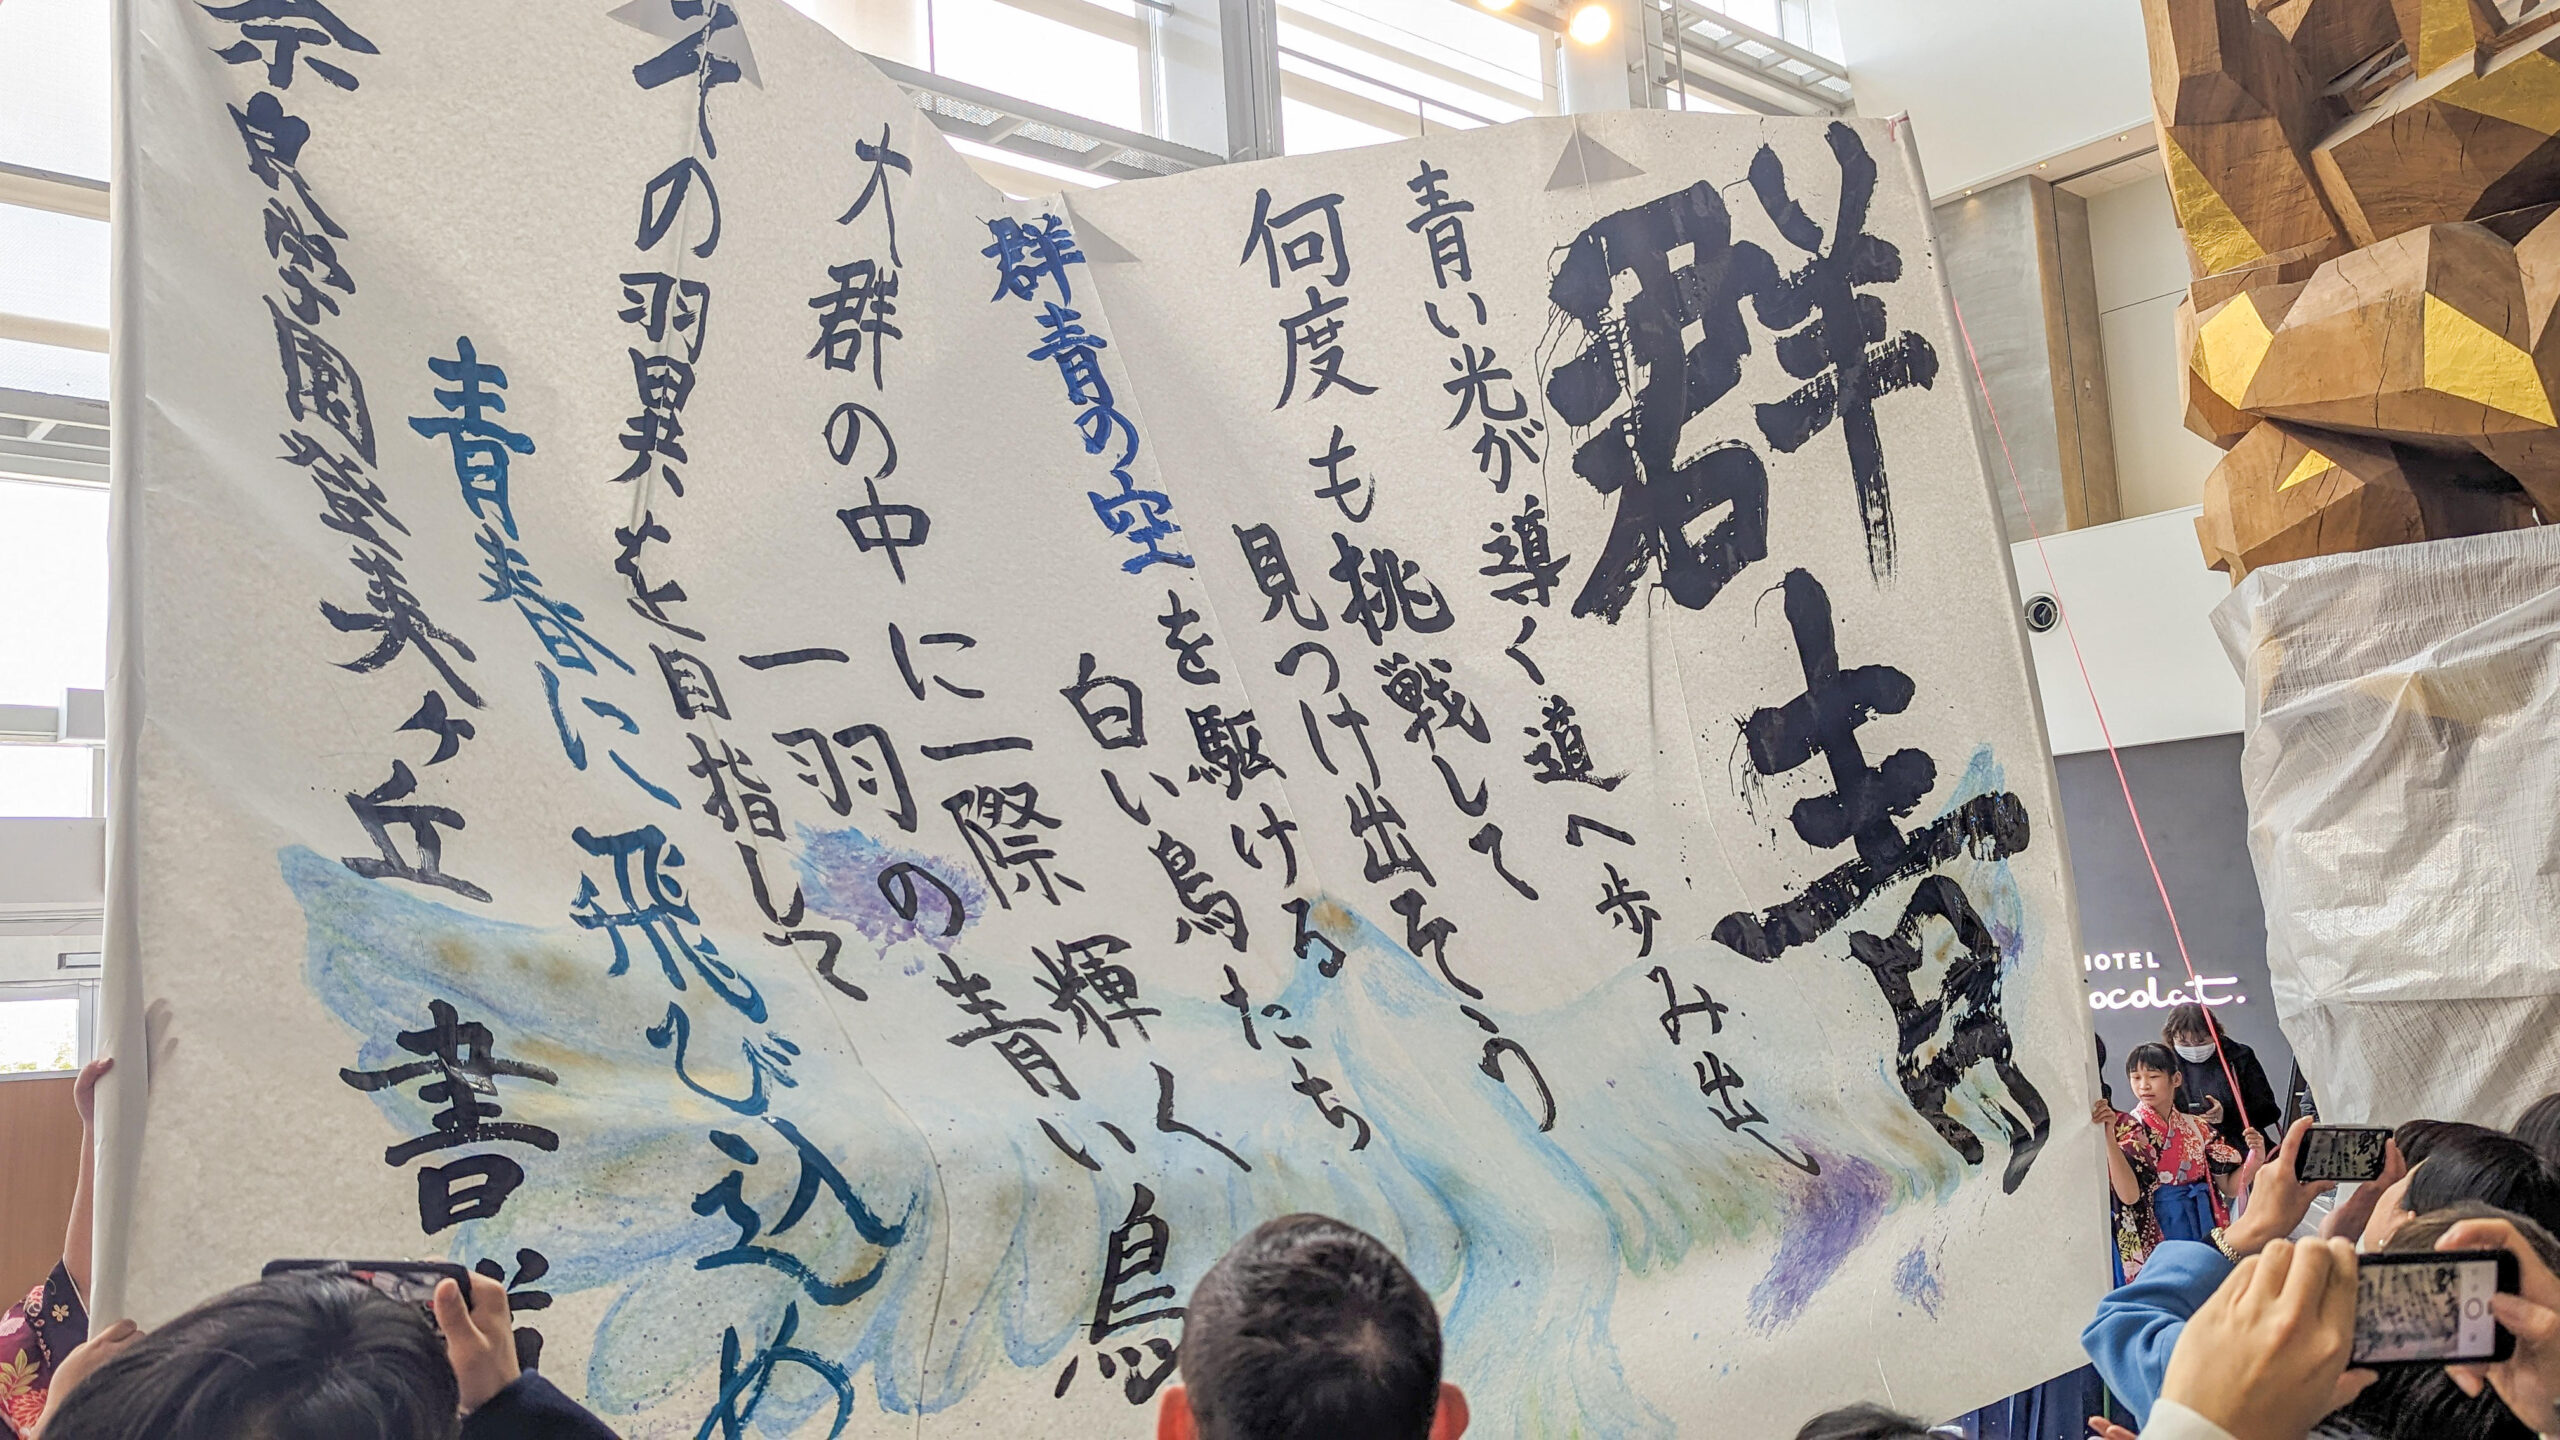 群青
青い光が導く道へ歩み出し
何度も挑戦して
見つけ出そう
群青の空を駆ける
白い鳥たち
大群の中に一際輝く
一羽の青い鳥
の翼を目指して
青春に飛び込め
奈良学園登美ヶ丘 書
HOTEL
ocolat.